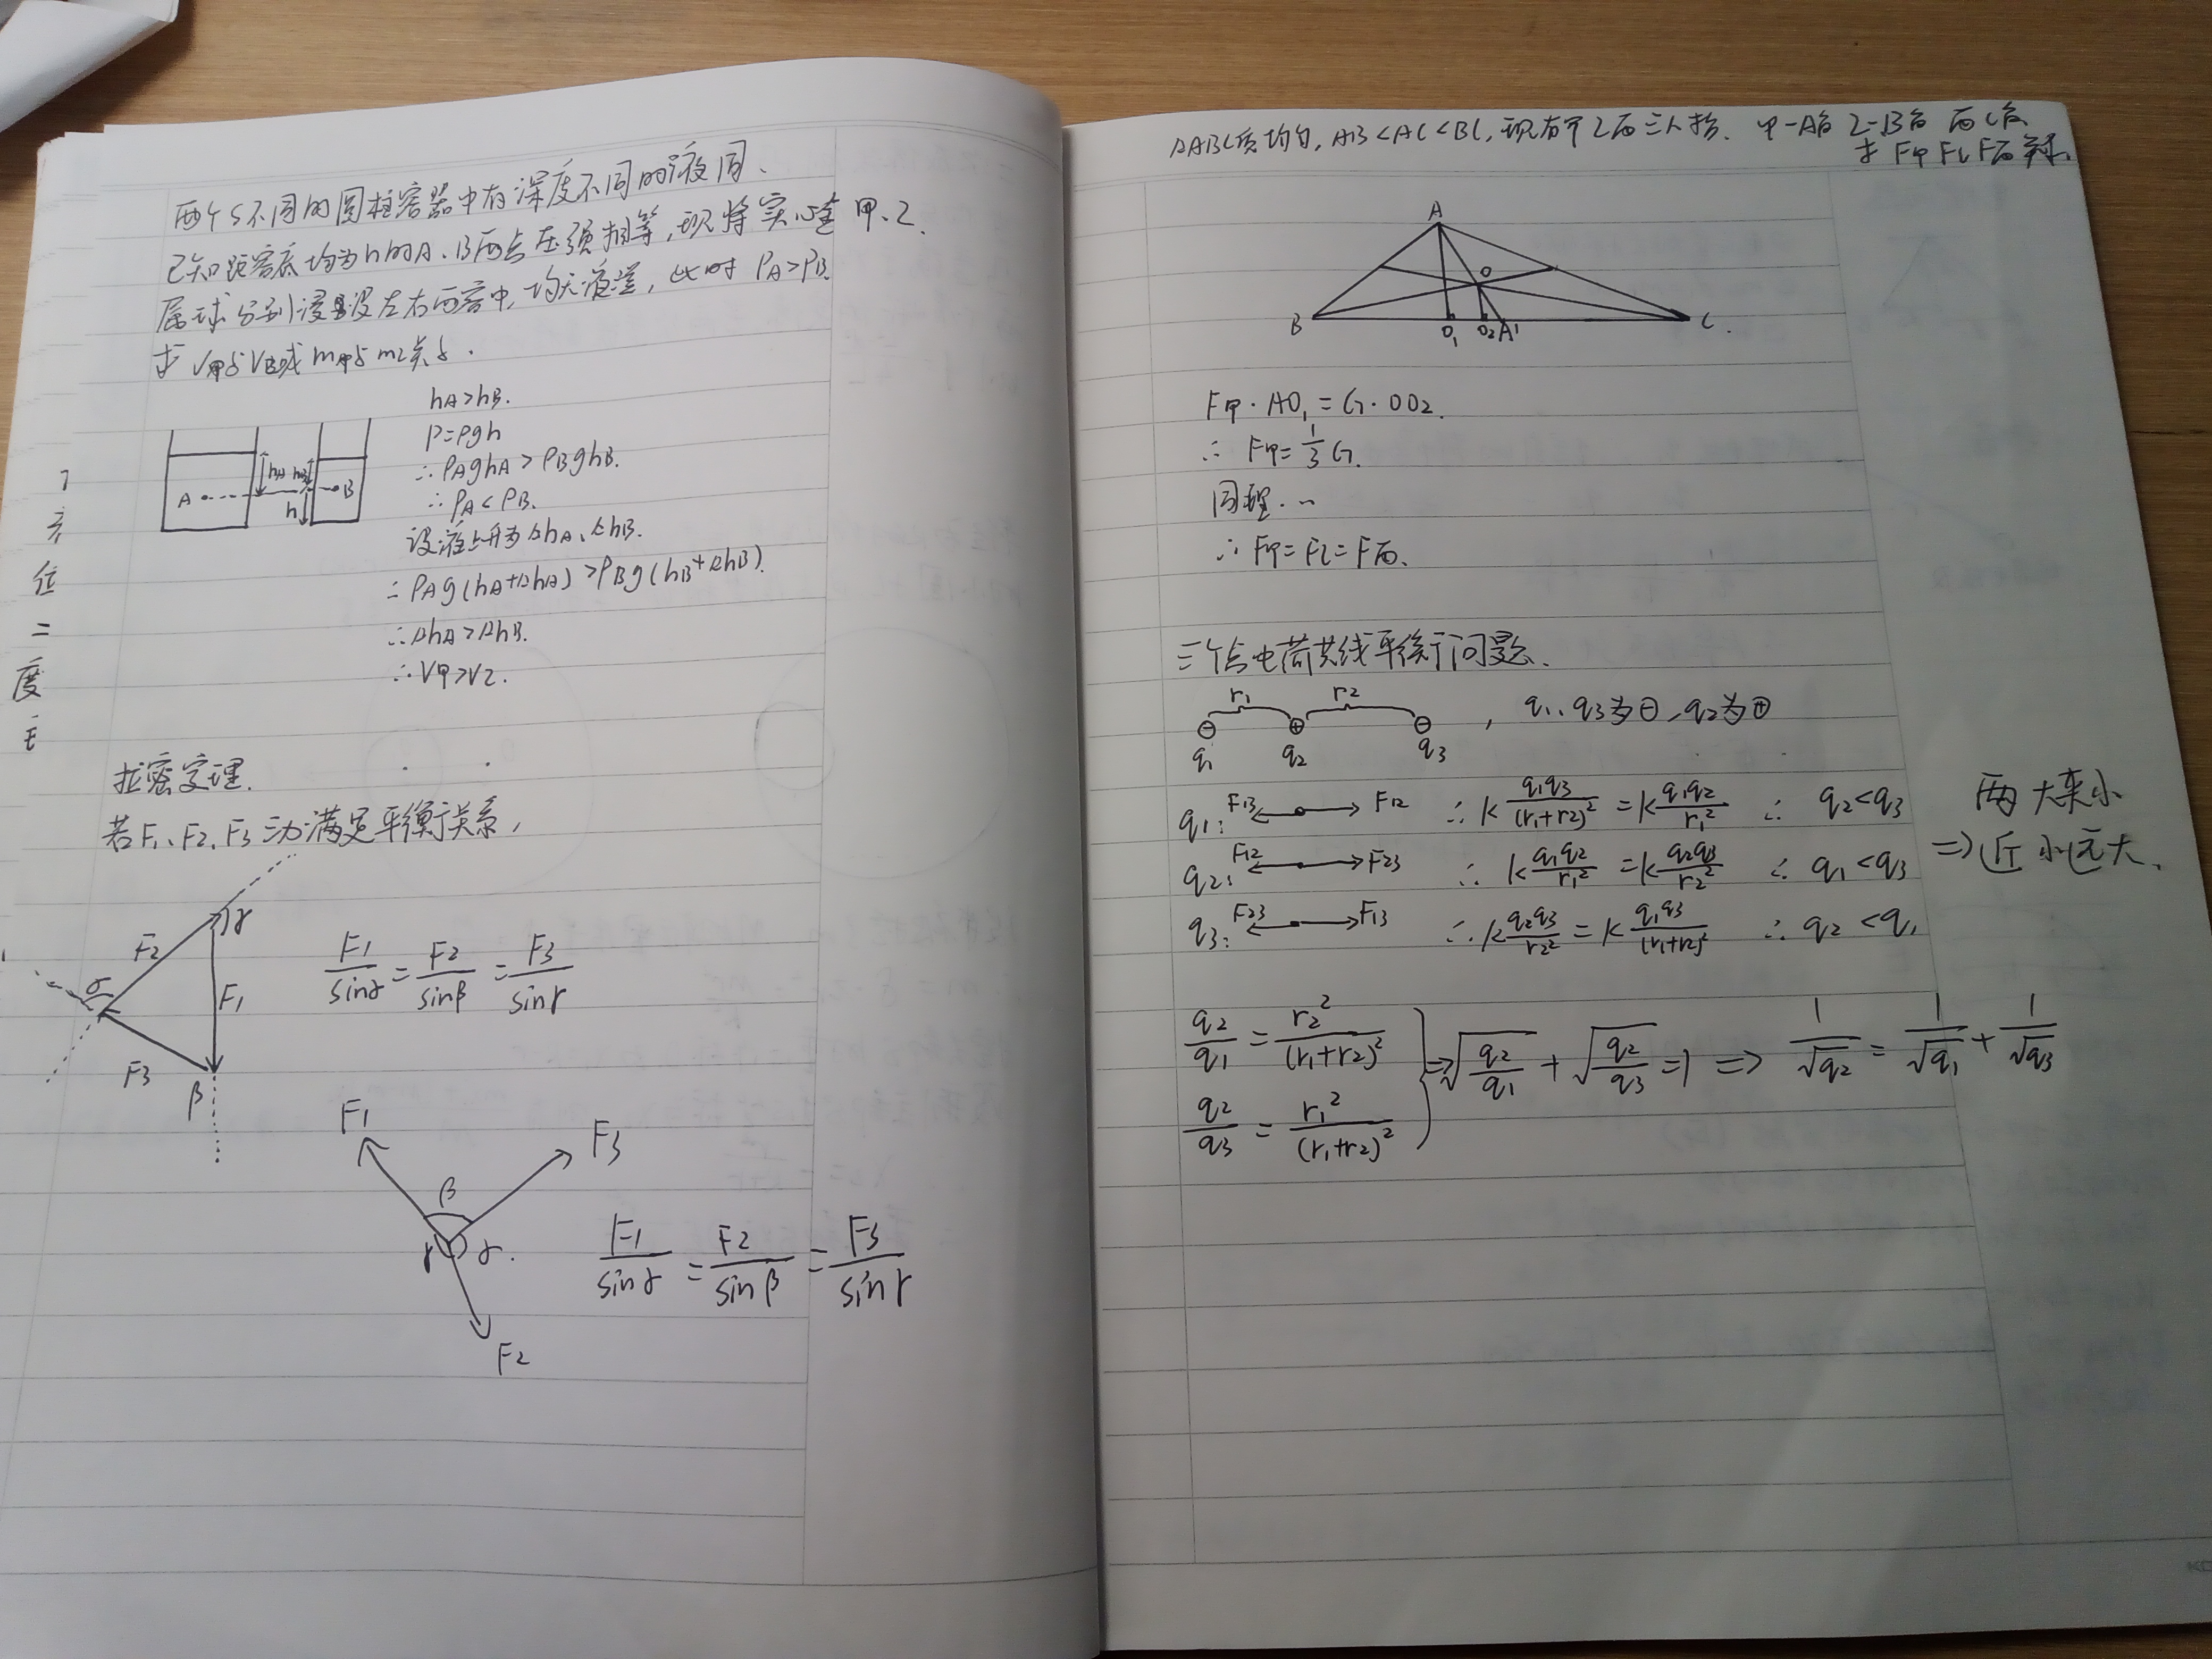 两个S不同的圆柱容器中有深度不同的液同.
已知距容底均为h的A.B两点压强相等,现将实心金 甲、乙
属球分别浸没左右两容中,均无液溢,此时 PA>PB.
求 V甲与VB或 m甲与m乙关系.
hA>hB.
P=ρgh
∴ρAghA>ρBghB.
∴ρA<ρB.
设液上升为ΔhA、ΔhB.
∴ρAg(hA+ΔhA)>ρBg(hB+ΔhB).
∴ΔhA>ΔhB.
∴V甲>V乙.
A
hA hB
B
h
二
度
拉密定理.
若F1、F2、F3三力满足平衡关系,
F2
F1
F3
β
F1/sinα=F2/sinβ=F3/sinγ
F1
F3
β
γ α.
F2
F1/sinα=F2/sinβ=F3/sinγ
△ABC质均匀,AB<AC<BC,现有甲乙丙三人抬. 甲-A角 乙-B角 丙C角
求 F甲 F乙 F丙关系.
A
O
B
O1 O2 A'
C.
F甲·AO1=G·OO2.
∴ F甲=1/3G.
同理...
∴ F甲=F乙=F丙.
三个点电荷共线平衡问题.
r1 r2
⊖ ⊕ ⊖ , q1、q3为⊖,q2为⊕
q1 q2 q3
q1: F13 ← → F12 ∴ k q1q3/(r1+r2)²=k q1q2/r1² ∴ q2<q3
q2: F12 ← → F23 ∴ k q1q2/r1²=k q2q3/r2² ∴ q1<q3
q3: F23 ← → F13 ∴ k q2q3/r2²=k q1q3/(r1+r2)² ∴ q2<q1
两大夹小
⇒近小远大.
q2/q1=r2²/(r1+r2)²
q2/q3=r1²/(r1+r2)²
⇒√(q2/q1)+√(q2/q3)=1 ⇒ 1/√q2=1/√q1+1/√q3